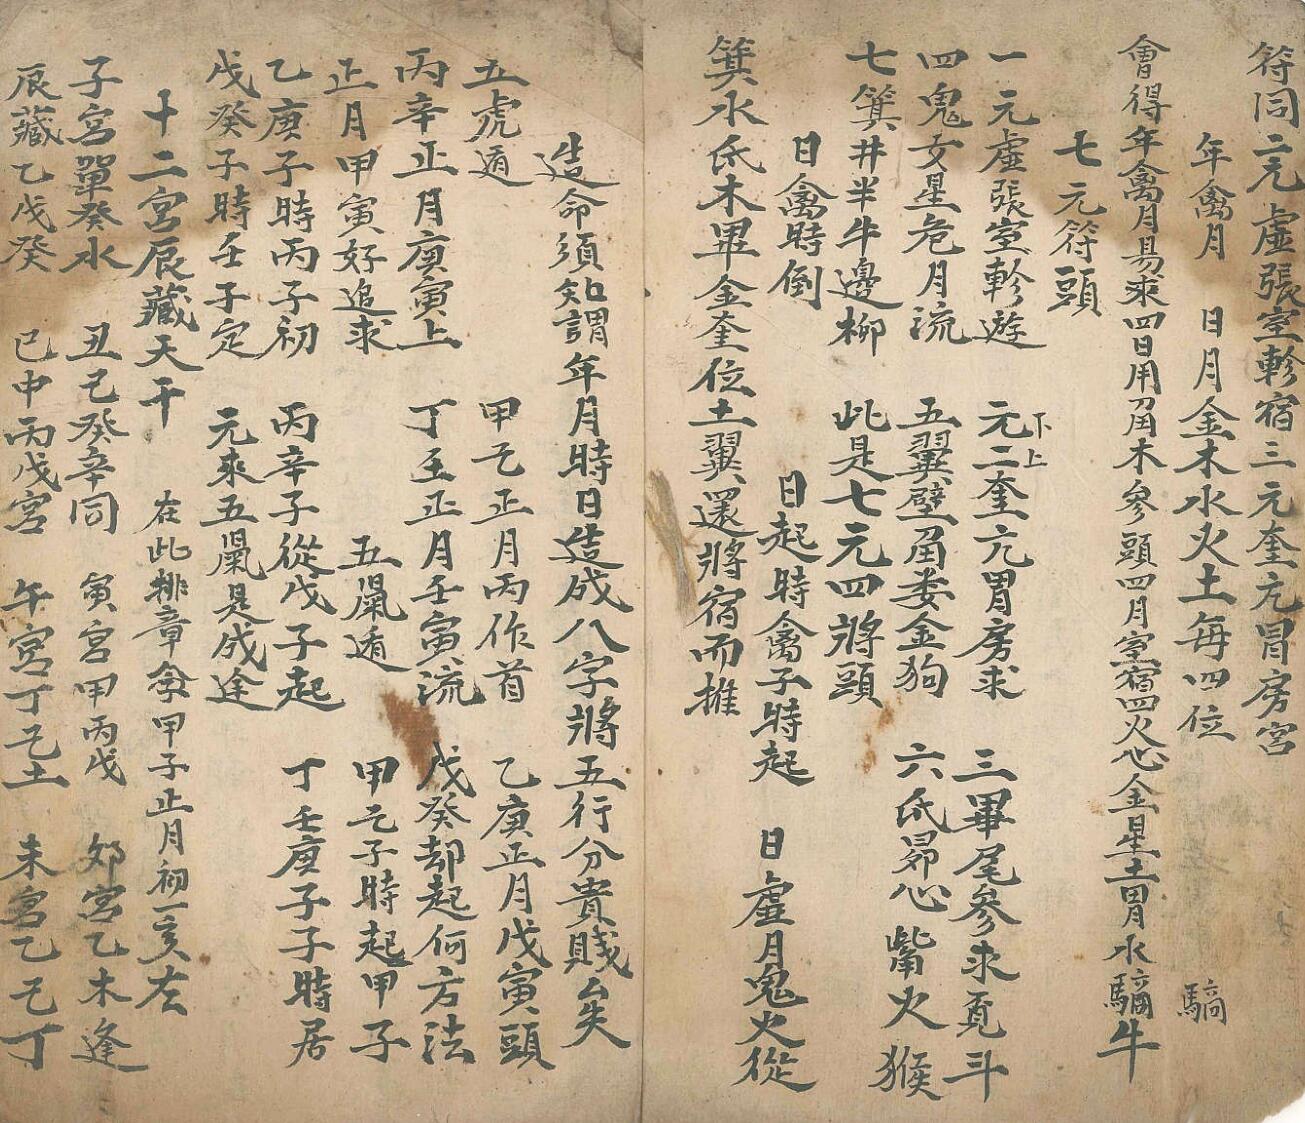 符同二元虛張室軫宿三元奎亢胃房宮
年禽月 日月金木水火土每四位 騳
會得年禽月易求四日用角木參頭四月室宿四火心金星土胃水騳牛
七元符頭
一元虛張室軫遊 元二奎亢胃房求 三畢尾參求覓斗
下上
四鬼女星危月流 五翼壁角娄金狗 六氐昴心觜火猴
七箕井半牛邊柳 此是七元四將頭
日禽時倒 日起時禽子時起 日虛月鬼火從
箕水氐木畢金奎位土翼還將宿而推
造命須知謂年月時日造成八字將五行分貴賤矣
五虎遁 甲乞正月丙作首 乙庚正月戊寅頭
丙辛正月庚寅上 丁壬正月壬寅流 戊癸却起何方法
正月甲寅好追求 五鼠遁 甲乞子時起甲子
乙庚子時丙子初 丙辛子從戊子起 丁壬庚子子時居
戊癸子時壬子定 元來五鼠是成途
十二宮辰藏天干 在此排章 甲子正月初一亥左
子宮單癸水 丑己癸辛同 寅宮甲丙戊 卯宮乙木逢
辰藏乙戊癸 巳中丙戊宮 午宮丁乞土 未宮乙乞丁